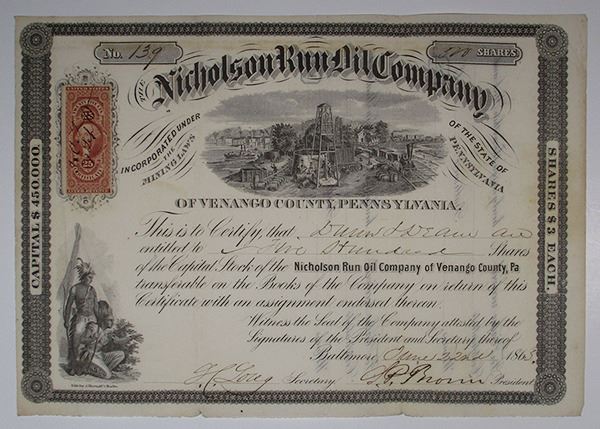 No. 139
SHARES
THE
Nicholson Run Oil Company
INCORPORATED UNDER
THE
MINING LAWS
OF THE STATE OF
PENNSYLVANIA
OF VENANGO COUNTY, PENNSYLVANIA.
CAPITAL $ 450,000.
SHARES $ 3 EACH.
25
This is to Certify, that
entitled to Hundred Shares
of the Capital Stock of the Nicholson Run Oil Company of Venango County, Pa
transferable on the Books of the Company on return of this
Certificate with an assignment endorsed thereon.
Witness the Seal of the Company attested by the
Signatures of the President and Secretary thereof
Baltimore June 22nd 186
Secretary President